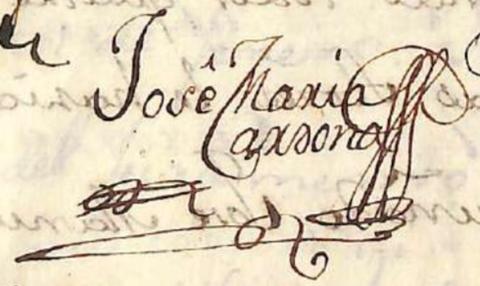 José Maria
Cardona